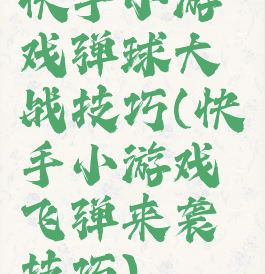 快手小游
戏弹球大
战技巧(快
手小游戏
飞弹来袭
技巧)